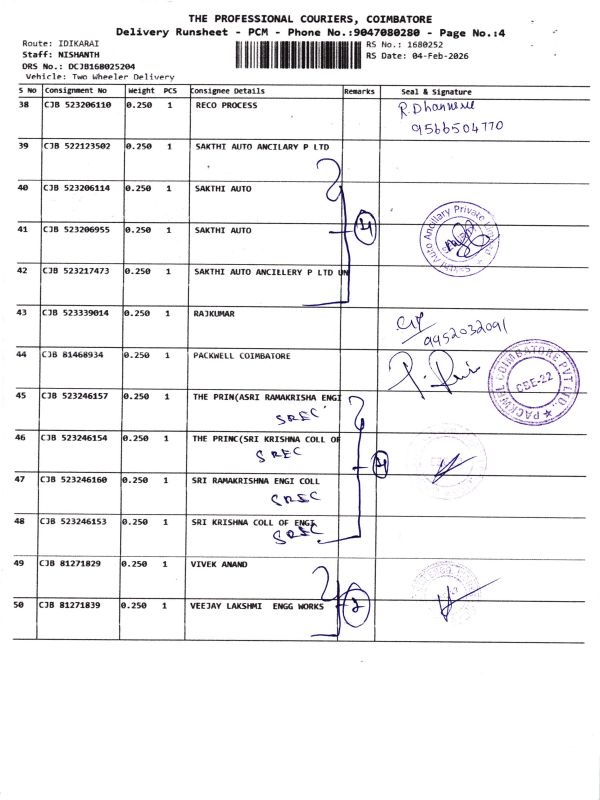 THE PROFESSIONAL COURIERS, COIMBATORE
Delivery Runsheet - PCM - Phone No.:9047080280 - Page No.:4
Route: IDIKARAI
RS No.: 1680252
Staff: NISHANTH
RS Date: 04-Feb-2026
DRS No.: DCJB168025204
Vehicle: Two Wheeler Delivery
S No Consignment No Weight PCS Consignee Details Remarks Seal & Signature
38 CJB 523206110 0.250 1 RECO PROCESS
9566504770
39 CJB 522123502 0.250 1 SAKTHI AUTO ANCILARY P LTD
40 CJB 523206114 0.250 1 SAKTHI AUTO
41 CJB 523206955 0.250 1 SAKTHI AUTO 4
Sakthi Auto Ancillary Private Limited
42 CJB 523217473 0.250 1 SAKTHI AUTO ANCILLERY P LTD UN
43 CJB 523339014 0.250 1 RAJKUMAR
9952032091
44 CJB 81468934 0.250 1 PACKWELL COIMBATORE
PACKWEL COIMBATORE PVT LTD.,
CSE-22
45 CJB 523246157 0.250 1 THE PRIN(ASRI RAMAKRISHA ENGI
SREC
46 CJB 523246154 0.250 1 THE PRINC(SRI KRISHNA COLL OF
SREC 4
47 CJB 523246160 0.250 1 SRI RAMAKRISHNA ENGI COLL
SREC
48 CJB 523246153 0.250 1 SRI KRISHNA COLL OF ENGI
SREC
49 CJB 81271829 0.250 1 VIVEK ANAND
50 CJB 81271839 0.250 1 VEEJAY LAKSHMI ENGG WORKS 2